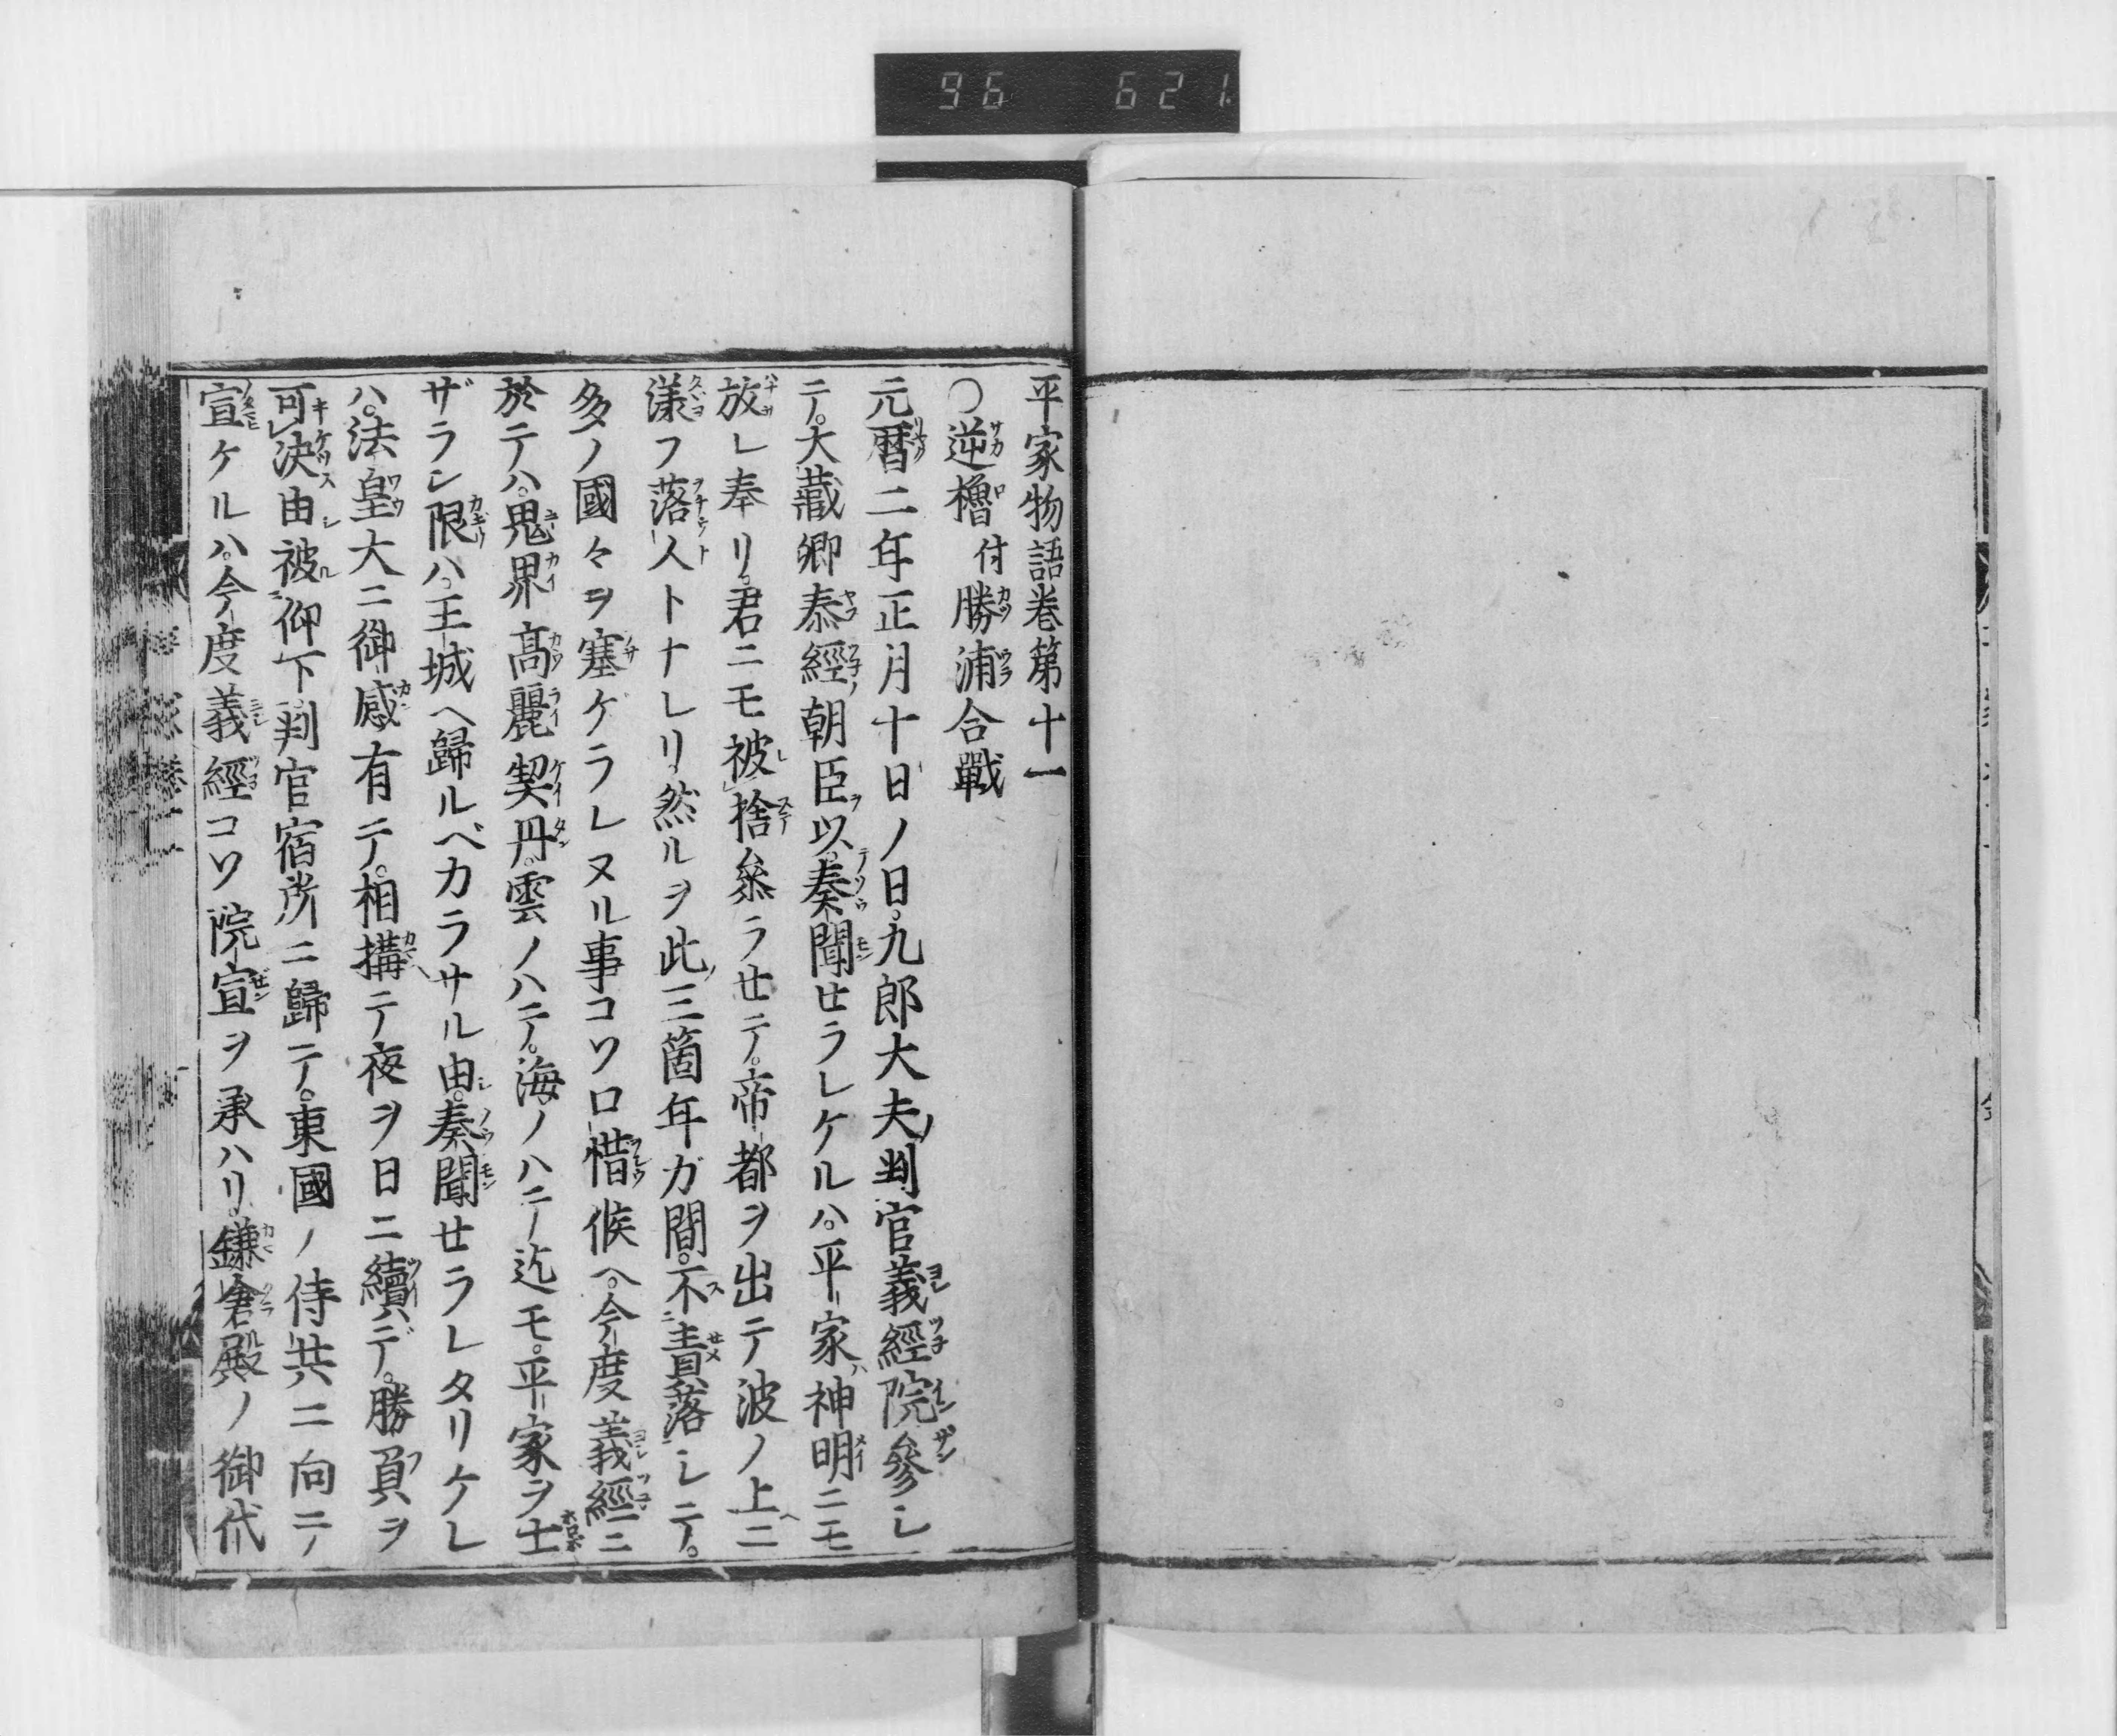 96 621
平家物語巻第十一
○逆櫓付勝浦合戰
元暦二年正月十日ノ日。九郎大夫ノ判官義經院參シ
テ。大藏卿泰經朝臣ヲ以。奏聞セラレケルハ。平家ハ神明ニモ
放レ奉リ。君ニモ被捨參ラセテ。帝都ヲ出テ波ノ上ニ
漾フ落人トナレリ。然ルヲ此三箇年ガ間。不責落シテ。
多ノ國々ヲ塞ゲラレヌル事コソ口惜候ヘ。今度義經ニ
於テハ。鬼界高麗契丹。雲ノハテ。海ノハテ迄モ。平家ヲ亡
ザラン限ハ。王城ヘ歸ルベカラサル由。奏聞セラレタリケレ
ハ。法皇大ニ御感有テ。相構テ夜ヲ日ニ續デ。勝負ヲ
可決由被仰下。判官宿所ニ歸テ。東國ノ侍共ニ向テ
宣ケルハ。今度義經コソ院宣ヲ承ハリ。鎌倉殿ノ御代